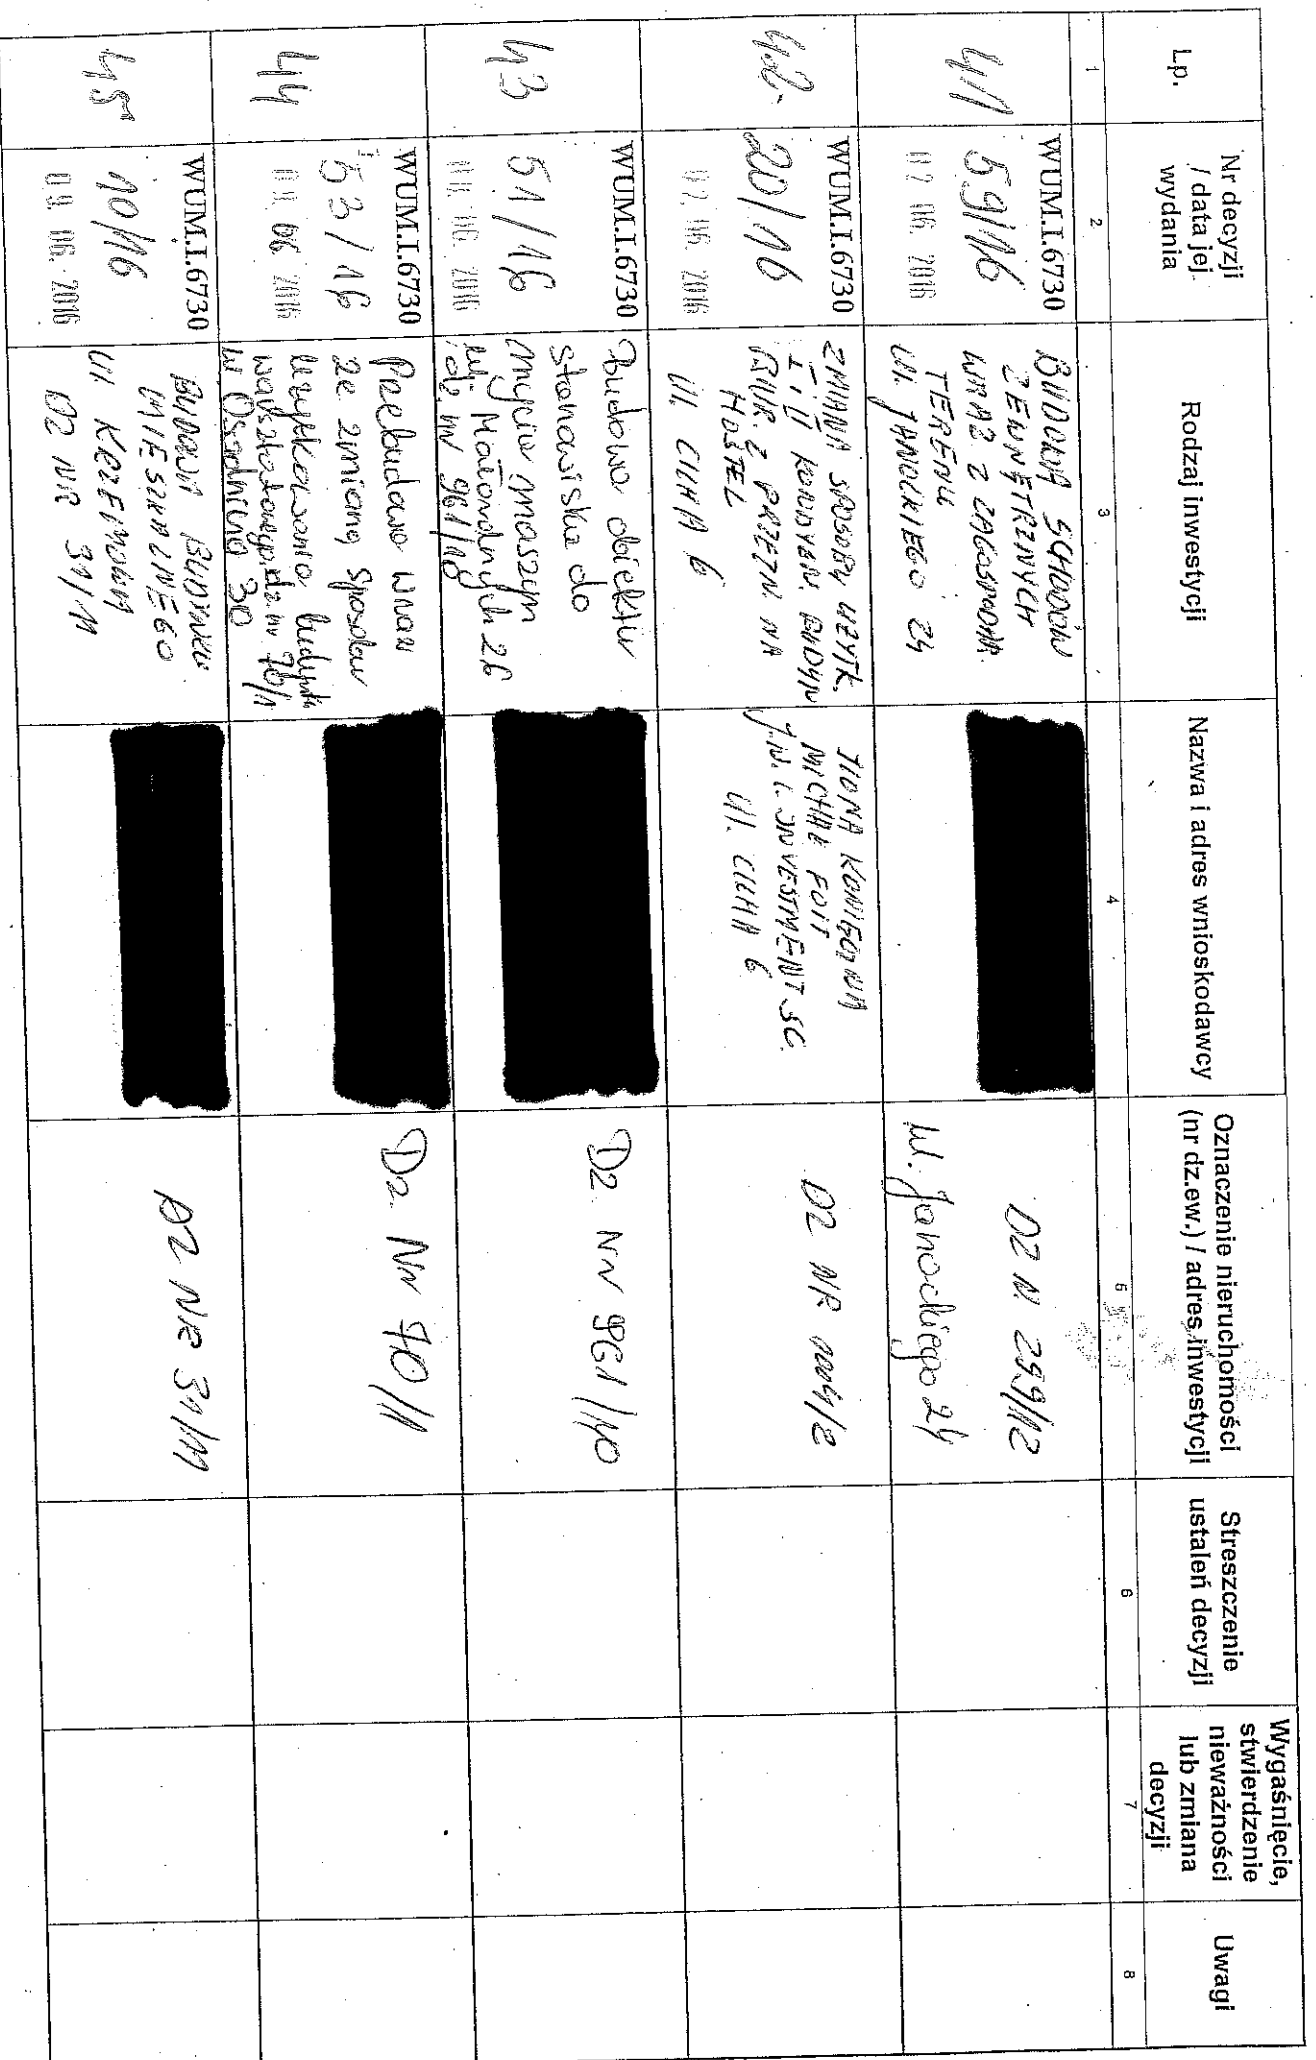 Lp.
Nr decyzji
/ data jej
wydania
Rodzaj inwestycji
Nazwa i adres wnioskodawcy
Oznaczenie nieruchomości
(nr dz.ew.) / adres inwestycji
Streszczenie
ustaleń decyzji
Wygaśnięcie,
stwierdzenie
nieważności
lub zmiana
decyzji
Uwagi
1
2
3
4
5
6
7
8
41
WUM.I.6730
59/16
02 06. 2016
BUDOWA SCHODÓW
ZEWNĘTRZNYCH
WRAZ Z ZAGOSPODAR.
TERENU
UL. JANOCKIEGO 24
DZ N. 299/12
ul. Janockiego 24
42.
WUM.I.6730
20/16
02. 06. 2016
ZMIANA SPOSOBU UŻYTK.
I i II KONDYGN. BUDYN
BIUR. Z PRZEZN NA
HOSTEL
UL. CICHA 6
MICHAŁ
INVESTMENT SC.
UL. CICHA 6
DZ NR 1004/2
43
WUM.I.6730
51/16
06. 2016
Budowa obiektu
stanowiska do
mycia maszyn
ul. 26
dz. nr 961/40
Dz. Nr 961/40
44
WUM.I.6730
53/16
06 2016
Przebudowa wraz
ze zmianą sposobu
użytkowania budynku
warsztatowego dz. nr 70/1
30
Dz. Nr 70/1
45
WUM.I.6730
10/16
06. 2016
BUDOWA BUDYNKU
MIESZKALNEGO
UL. KRZEMOWA
DZ NR 31/11
DZ NR 31/11